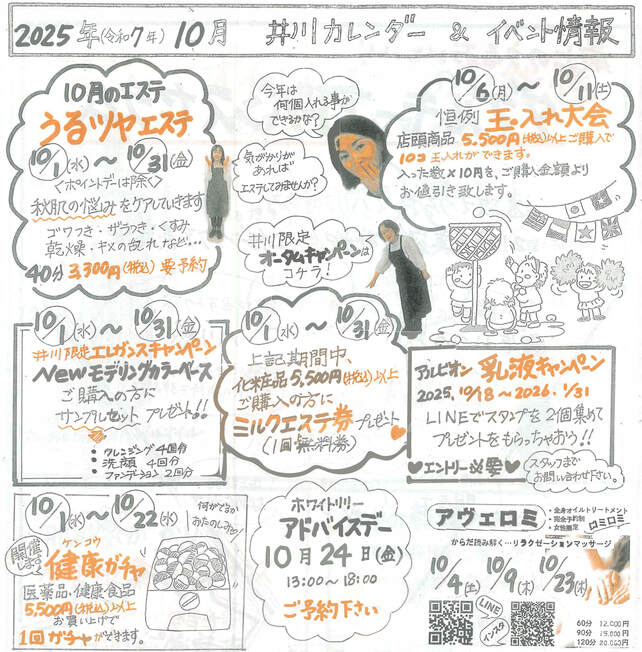 2025年(令和7年)10月 井川カレンダー & イベント情報
10月のエステ
うるツヤエステ
10/1(水)～10/31(金)
<ポイントデーは除く>
秋肌の悩みをケアしていきます
ゴワつき・ザラつき・くすみ
乾燥・キメの乱れなど...
40分 3,300円(税込) 要予約
今年は
何個入れる事が
できるかな?
気がかりが
あれば
エステしてみませんか?
井川限定
オータムキャンペーンは
コチラ!
10/6(月)～10/11(土)
恒例 玉入れ大会
店頭商品 5,500円(税込)以上ご購入で
10コ玉入れができます。
入った数×10円を、ご購入金額より
お値引き致します。
10/1(水)～10/31(金)
井川限定エレガンスキャンペーン
Newモデリングカラーベース
ご購入の方に
サンプルセットプレゼント!!
・クレンジング 4回分
・洗顔 4回分
・ファンデーション 2回分
10/1(水)～10/31(金)
上記期間中、
化粧品5,500円(税込)以上
ご購入の方に
ミルクエステ券プレゼント
(1回無料券)
アルビオン 乳液キャンペーン
2025.10/18～2026.1/31
LINEでスタンプを2個集めて
プレゼントをもらっちゃおう!!
エントリー必要
スタッフまで
お問い合わせ下さい。
10/1(水)～10/22(水)
何がでるか
おたのしみ♡
開催します
ケンコウ
健康ガチャ
医薬品・健康食品
5,500円(税込)以上
お買い上げで
1回ガチャができます。
ホワイトリリー
アドバイスデー
10月24日(金)
13:00～18:00
ご予約下さい
アヴェロミ
・全身オイルトリートメント
・完全予約制
・女性限定
ロミロミ
からだ読み解く…リラクゼーションマッサージ
10/4(土) 10/9(木) 10/23(木)
LINE
インスタ
60分 12,000円
90分 15,000円
120分 20,000円